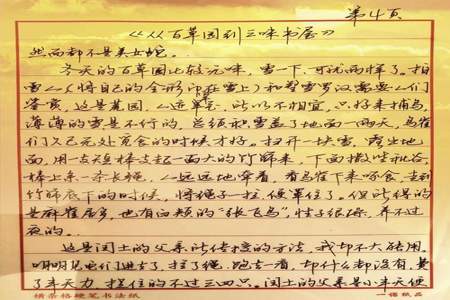 第4页
《从百草园到三味书屋》
然而都不是美女蛇。
冬天的百草园比较无味,雪一下,可就两样了。拍
雪人(将自己的全形印在雪上)和塑雪罗汉需要人们
鉴赏,这是荒园,人迹罕至,所以不相宜,只好来捕鸟。
薄薄的雪是不行的,总须积雪盖了地面一两天,鸟雀
们久已无处觅食的时候才好。扫开一块雪,露出地
面,用一支短棒支起一面大的竹筛来,下面撒些秕谷,
棒上系一条长绳,人远远地牵着,看鸟雀下来啄食,走到
竹筛底下的时候,将绳子一拉,便罩住了。但所得的
是麻雀居多,也有白颊的“张飞鸟”,性子很躁,养不过
夜的。
这是闰土的父亲所传授的方法,我却不大能用。
明明见它们进去了,拉了绳,跑去一看,却什么都没有,费
了半天力,捉住的不过三四只。闰土的父亲是小半天便
横条格硬笔书法纸